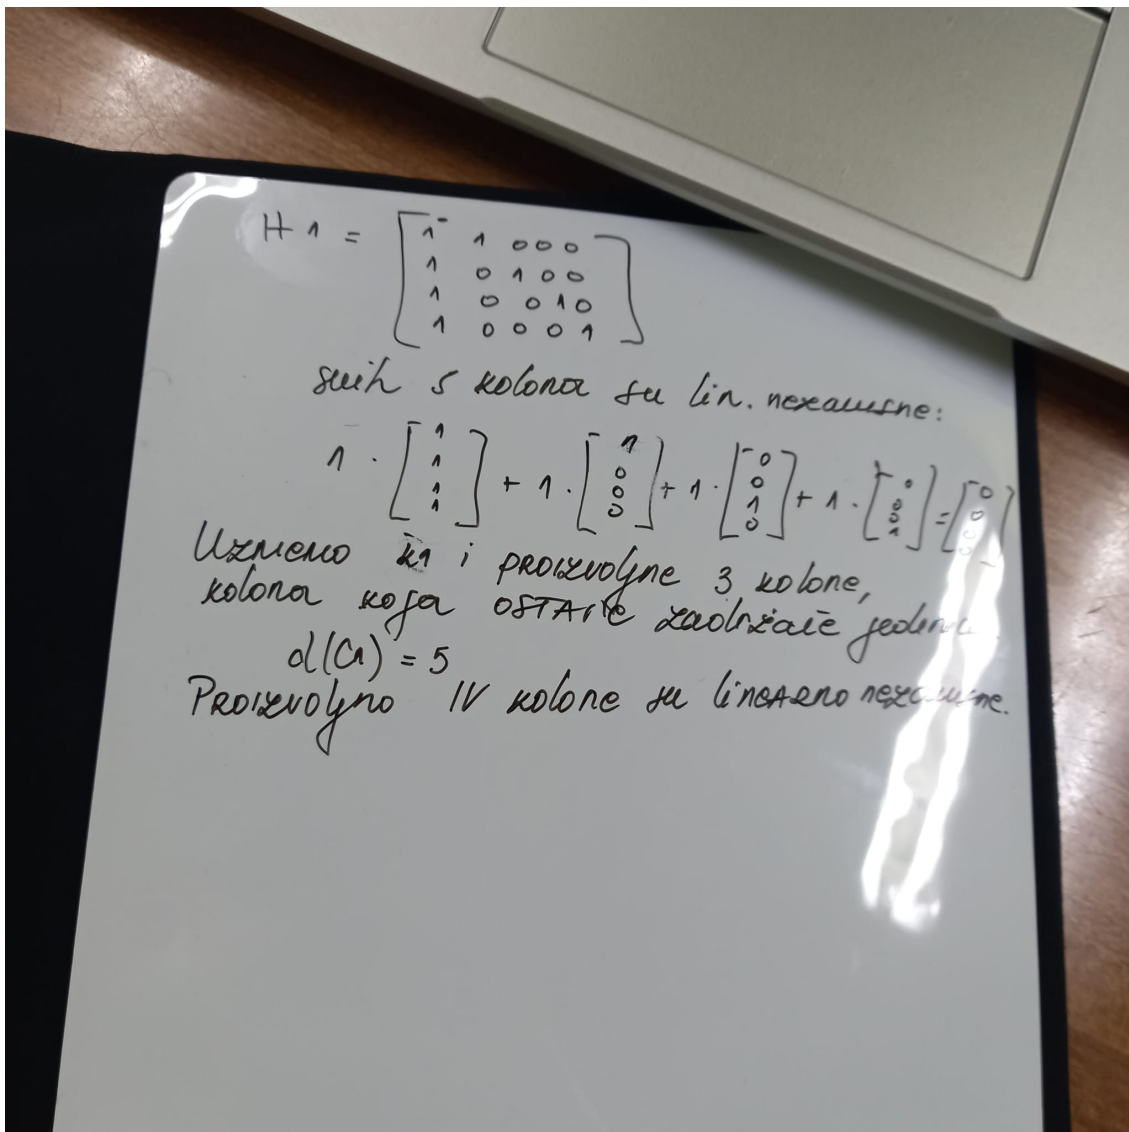 H1 = [ 1 1 0 0 0
1 0 1 0 0
1 0 0 1 0
1 0 0 0 1 ]
svih 5 kolona su lin. nezavisne:
1 · [ 1 1 1 1 ] + 1 · [ 1 0 0 0 ] + 1 · [ 0 0 1 0 ] + 1 · [ 0 0 1 ] = [ 0 0 0 0 ]
Uzmemo k1 i proizvoljne 3 kolone,
kolona koja OSTAJE zadržaće
d(C1) = 5
Proizvoljno IV kolone su linearno nezavisne.